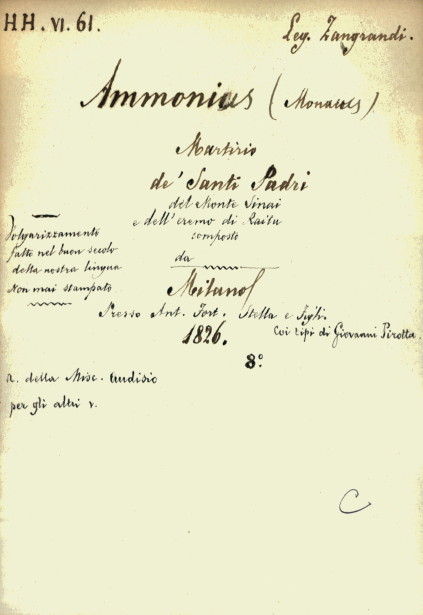 HH. VI. 61.
Leg. Zangrandi.
Ammonius (Monacus)
Martirio
de' Santi Padri
del Monte Sinai
e dell'eremo di Raitu
composto
da
Volgarizzamento
fatto nel buon secolo
della nostra lingua
Non mai stampato
Milano
Presso Ant. Fort. Stella e Figli.
Coi tipi di Giovanni Pirotta.
1826.
8°
a. della Misc. Audisio
per gli altri v.
C